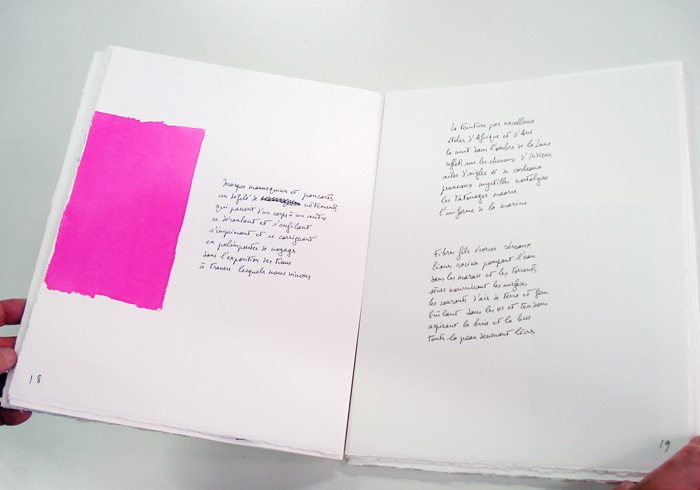 Masques mannequins et passants
un défilé de vêtements
qui passent d'un corps à un autre
se déroulant et s'enfilant
s'imprimant et se corrigeant
en palimpsestes de voyages
dans l'exposition des tissus
à travers lesquels nous vivons
18
La teinture par excellence
étoiles d'Afrique et d'Asie
la nuit dans l'ombre de la lune
reflets sur les cheveux d'Indiens
ailes d'aigles et de corbeaux
pruneaux myrtilles nostalgies
les tatouages maoris
l'uniforme de la marine
Fibres fils écorces réseaux
lianes racines pompant l'eau
dans les marais et les torrents
sèves nourrissant les surfaces
les courants d'air de terre et feu
brûlant dans les os et tendons
aspirant la brise et la
toute la peau devenant lèvres
19